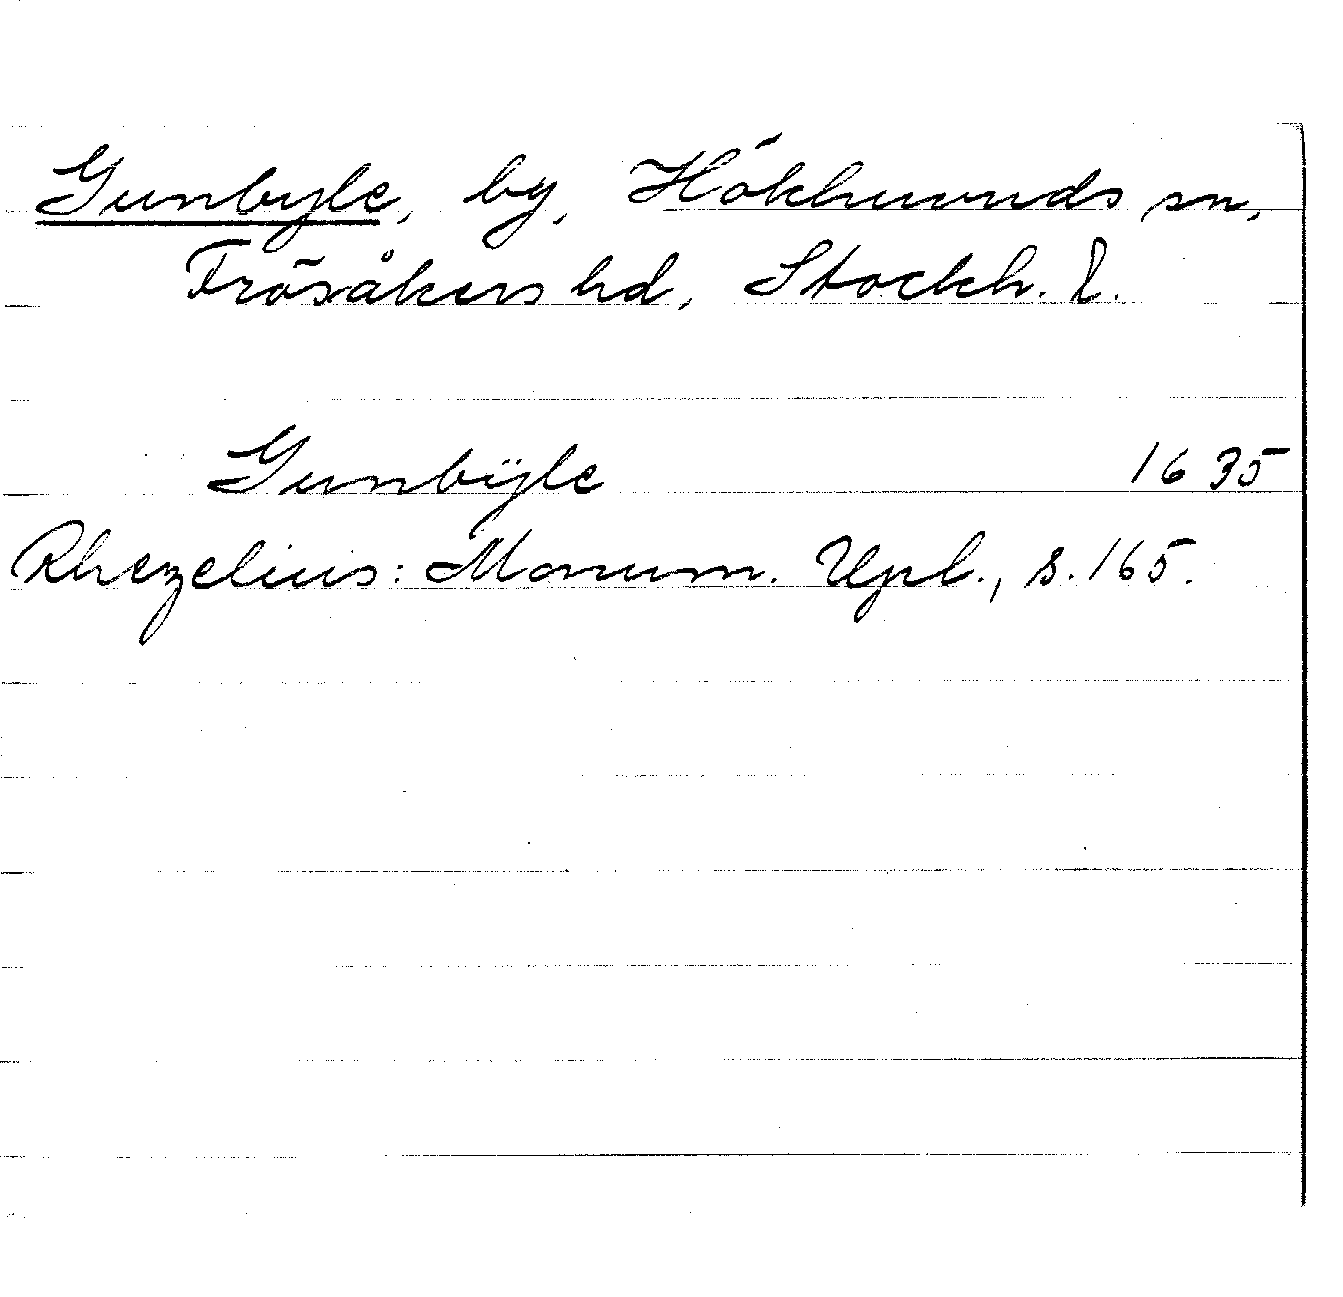 Gunbyle, by, Hökhuvuds sn,
Frösåkers hd, Stockh. l.
Gunbÿle 1635
Rhezelius: Monum. Upl., s. 165.